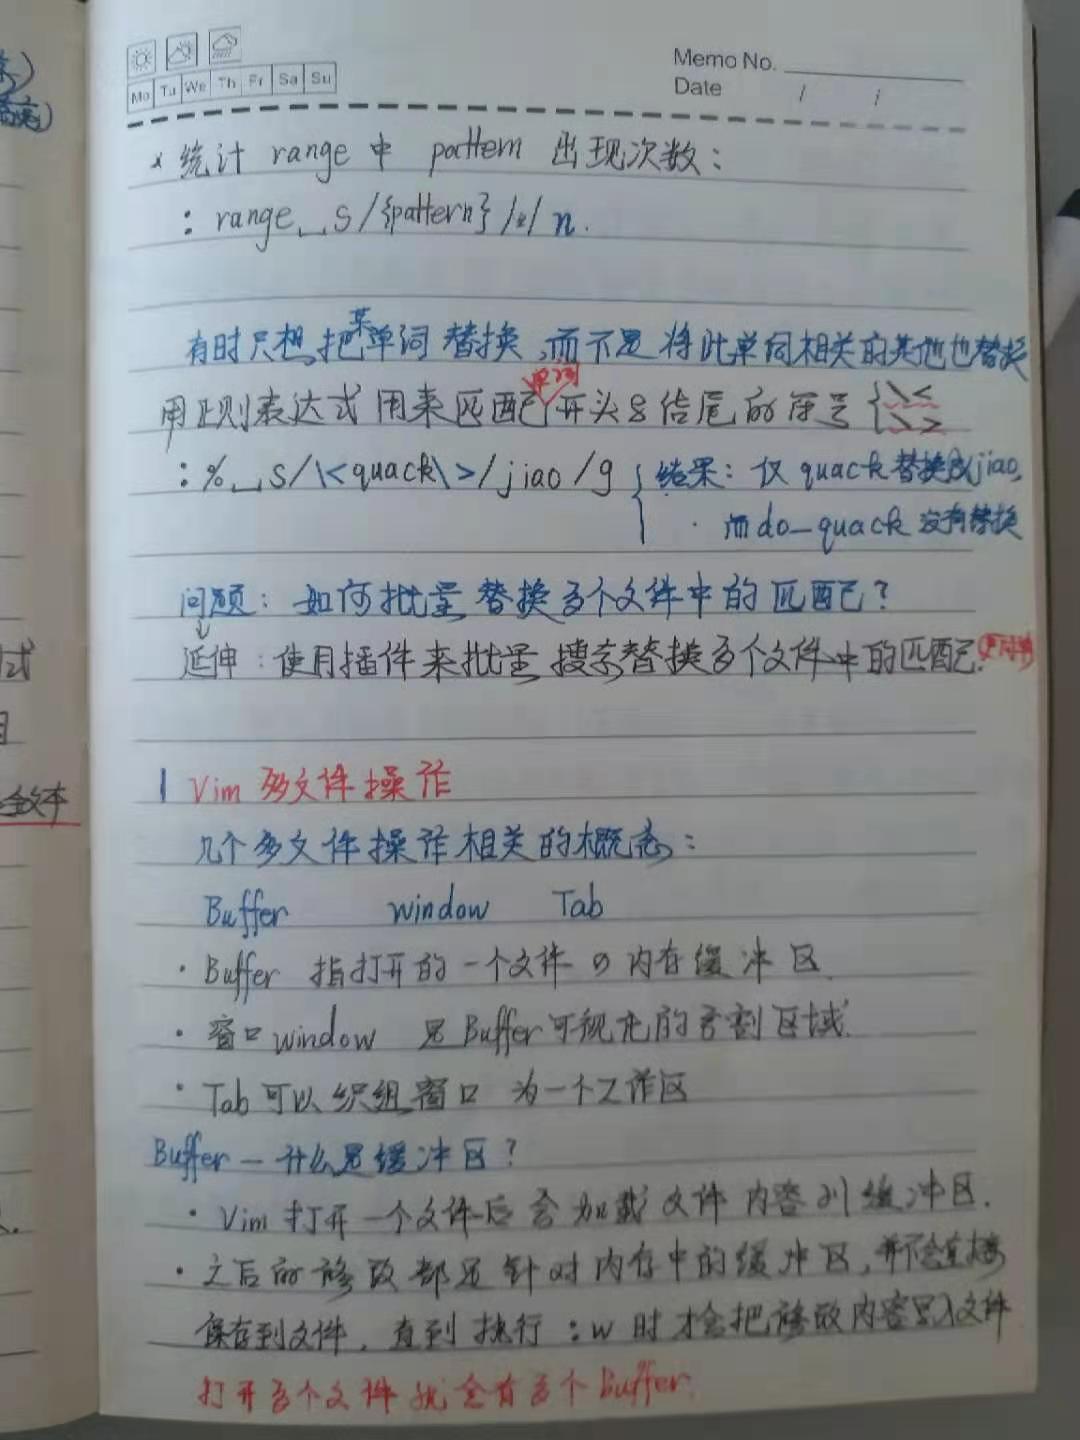 Memo No.
Mo Tu We Th Fr Sa Su
Date / /
× 统计 range 中 pattern 出现次数：
：range␣s/{pattern}/ / n.
有时只想把某单词替换，而不是将此单词相关的其他也替换
用正则表达式用来匹配单词开头&结尾的符号{\< \>
：%␣s/\<quack\>/jiao/g {结果：仅quack替换成jiao,
而do_quack没有替换
问题：如何批量替换多个文件中的匹配？
↓
延伸：使用插件来批量搜索替换多个文件中的匹配.
1 Vim 多文件操作
几个多文件操作相关的概念：
Buffer window Tab
· Buffer 指打开的一个文件の内存缓冲区.
· 窗口window 是Buffer可视化的分割区域.
· Tab可以织组窗口 为一个工作区
Buffer — 什么是缓冲区？
· Vim打开一个文件后会加载文件内容到缓冲区.
· 之后的修改都是针对内存中的缓冲区，并不会直接
保存到文件，直到执行：w 时才会把修改内容写入文件
打开多个文件就会有多个Buffer.
式
全文本